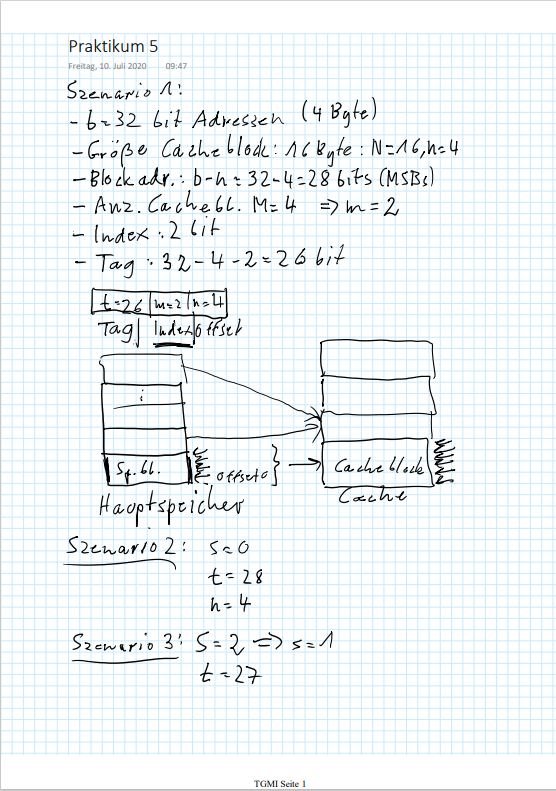 Praktikum 5
Freitag, 10. Juli 2020 09:47
Szenario 1:
- b=32 bit Adressen (4 Byte)
- Größe Cacheblock: 16 Byte : N=16, n=4
- Blockadr.: b-n = 32-4=28 bits (MSBs)
- Anz. Cachebl. M=4 => m=2
- Index : 2 bit
- Tag : 32-4-2=26 bit
t=26 | m=2 | n=4
Tag | Index | Offset
Sp.bl. offset Cacheblock
Hauptspeicher Cache
Szenario 2: s=0
t=28
n=4
Szenario 3: S=2 => s=1
t=27
TGMI Seite 1